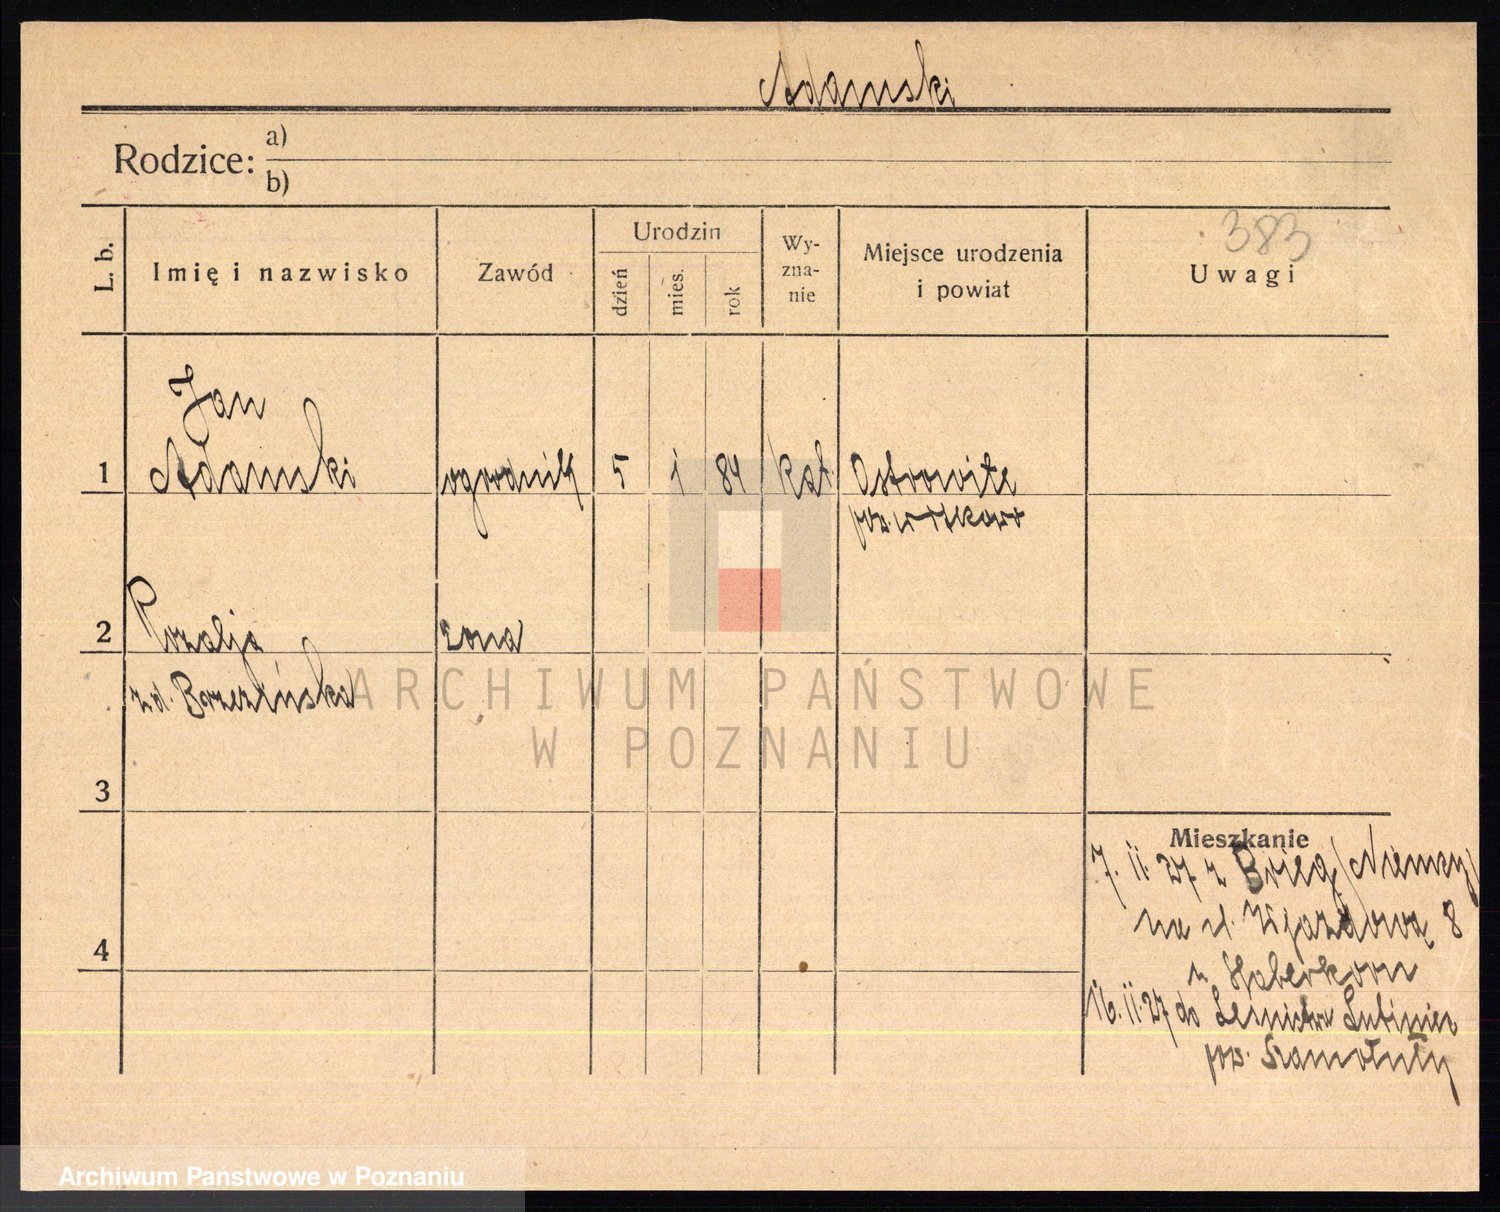 Adamski
Rodzice: a)
b)
383
L. b. Imię i nazwisko Zawód Urodzin dzień mies. rok Wy-zna-nie Miejsce urodzenia i powiat Uwagi
Jan
1 Adamski ogrodnik 5 1 84 kat. Ostrowite
pow. Witkowo
2 Rozalja żona
z d. Brzezińska
3
4
Mieszkanie
7. II 27 z Brieg (Niemcy)
na ul. Wjazdową 8
u Haberkorn
16. II. 27 do Leśnictwa
pow. Szamotuły
ARCHIWUM PAŃSTWOWE
W POZNANIU
Archiwum Państwowe w Poznaniu